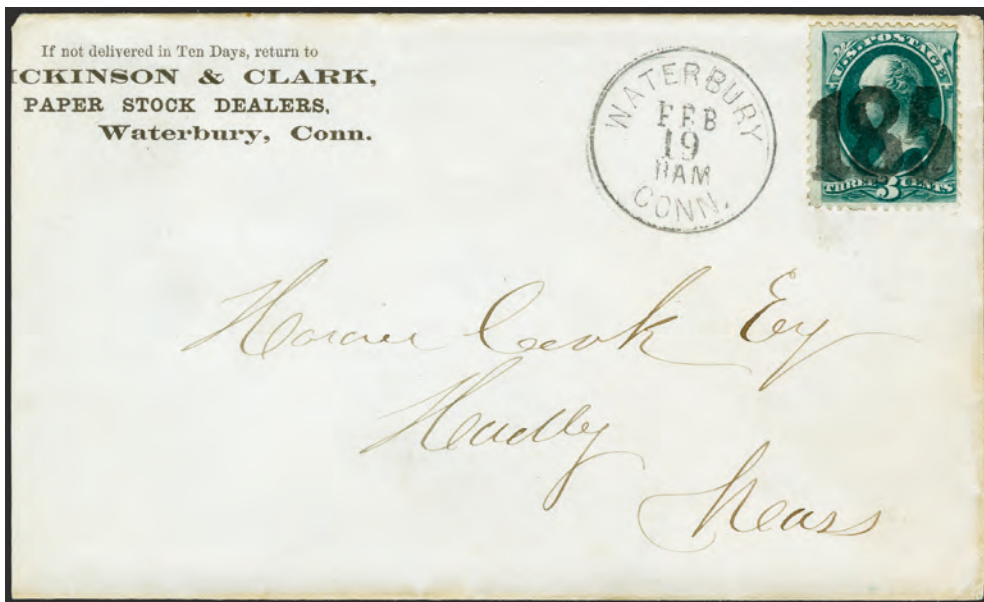 If not delivered in Ten Days, return to
ICKINSON & CLARK,
PAPER STOCK DEALERS,
Waterbury, Conn.
WATERBURY
FEB
19
11AM
CONN.
U.S. POSTAGE
185
THREE 3 CENTS
Horace Cook Esq
Hadley
Mass